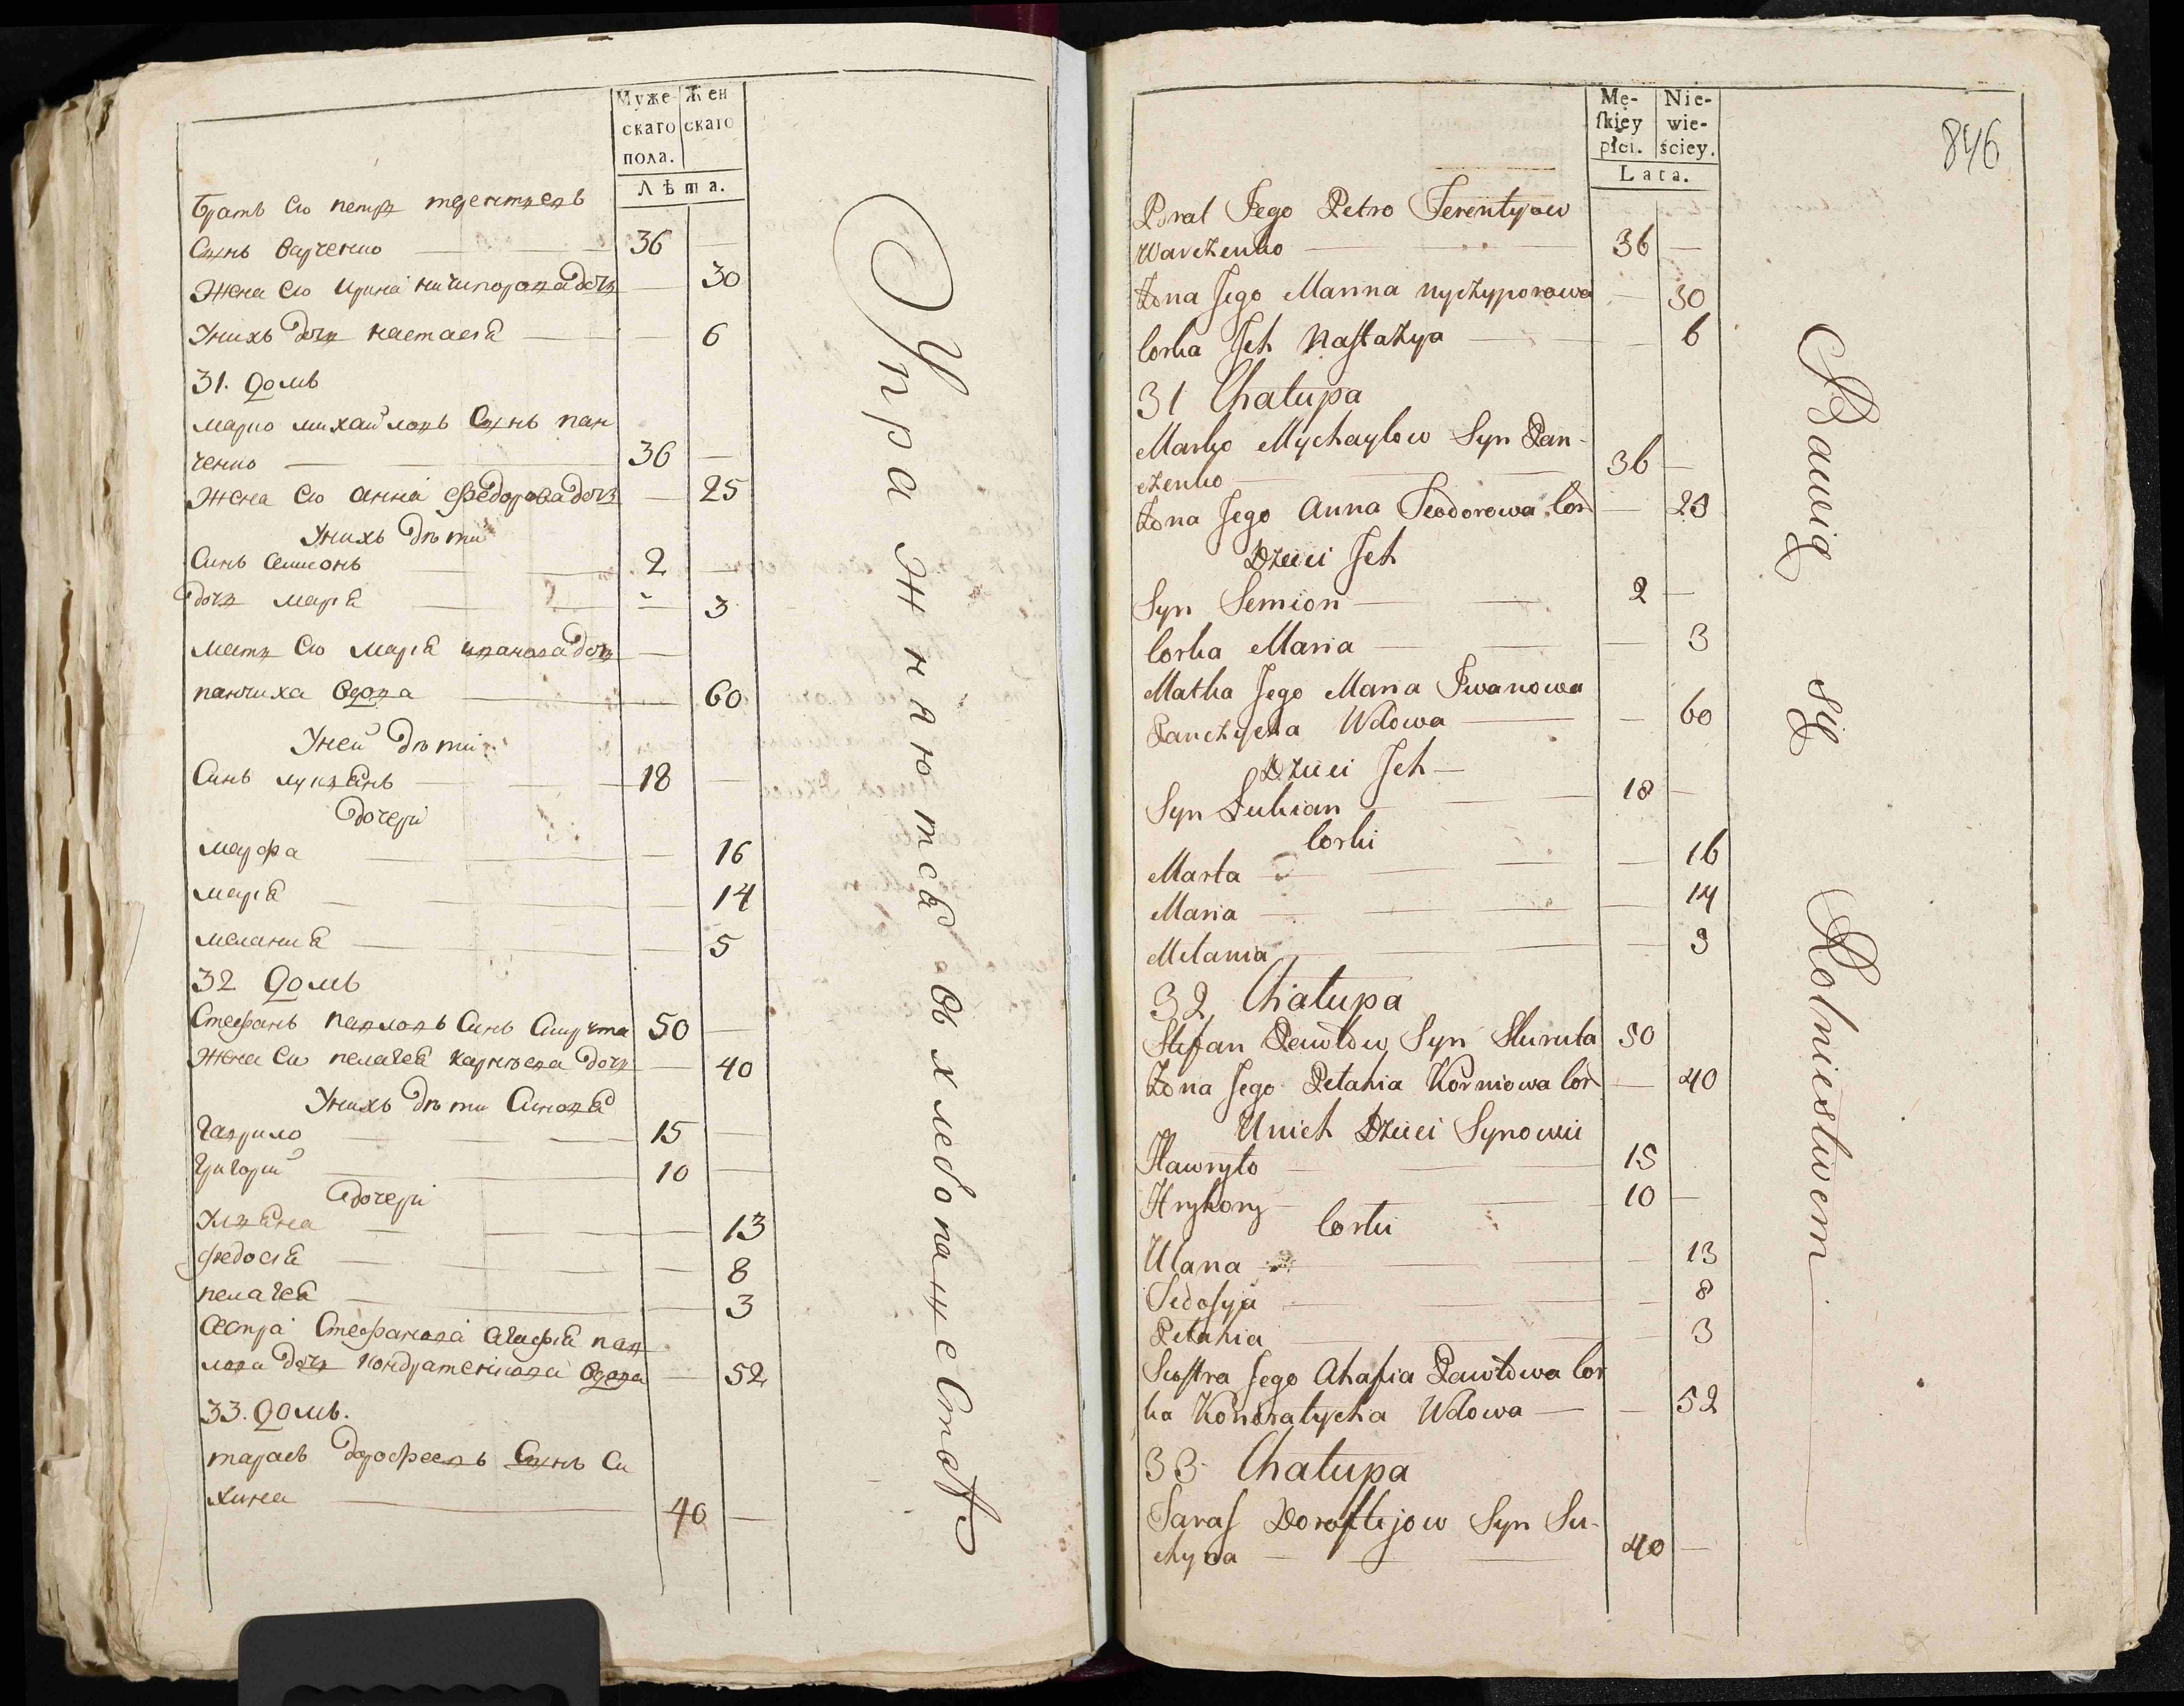 Муже- Жен
скаго скаго
пола.
Лѣта.
Братъ Ево петръ терентьевъ
Сынъ Варченко — 36 —
Жена Ево Ирина ничипорова дочь — 30
Унихъ дочь настасія — 6
31. Домъ
марко михайловъ Сынъ пан
ченко — 36 —
Жена Ево анна федорова дочь — 25
Унихъ дѣти
Синъ Семионъ — 2 —
дочь марія — 3
мать Ево марія иванова дочь —
панчиха вдова — 60
Уней дѣти
Синъ лукьянъ — 18 —
дочери
марфа — 16
марія — 14
мелания — 5
32 Домъ
Стефанъ павловъ Синъ 50 —
Жена Ево пелагея карнѣева дочь — 40
Унихъ дѣти Синовья
гаврило — 15 —
григорий — 10 —
дочери
Ульяна — 13
федосія — 8
пелагея — 3
Сестра Стефанова агафія пав
лова дочь кондратенкова вдова — 52
33. Домъ.
тарасъ дорофеевъ Сынъ Си
хина — 40 —
Упражняются въ хлебопашествѣ
846
Mę- Nie-
ſkiey wie-
płci. ściey.
Lata.
Brat Jego Petro Terentyow
Warczenko — 36 —
Żona Jego Marina nyczyporowa — 30
Corka Jch Naſtazya — 6
31 Chałupa
Marko Mychayłow Syn Pan-
czenko — 36 —
Żona Jego Anna Teodorowa Cor — 25
Dzieci Jch
Syn Semion — 2 —
Corka Maria — 3
Matka Jego Maria Iwanowa
Panczycha Wdowa — 60
Dzieci Jch —
Syn Łukian — 18 —
Corki
Marta — 16
Maria — 14
Melania — 5
32 Chałupa
Stefan Pawłow Syn Skuruta 50
Żona Jego Pelahia Korniowa Cor — 40
Unich Dzieci Synowii
Hawryło — 15
Hryhory — 10 —
Corki
Ulana — 13
Fedoſya — 8
Pelahia — 3
Sioſtra Jego Ahafia Pawłowa Cor
ka Kondratycha Wdowa — 52
33 Chałupa
Taraſ Doroftejow Syn Su-
chyna — 40 —
Bawią się Rolnictwem